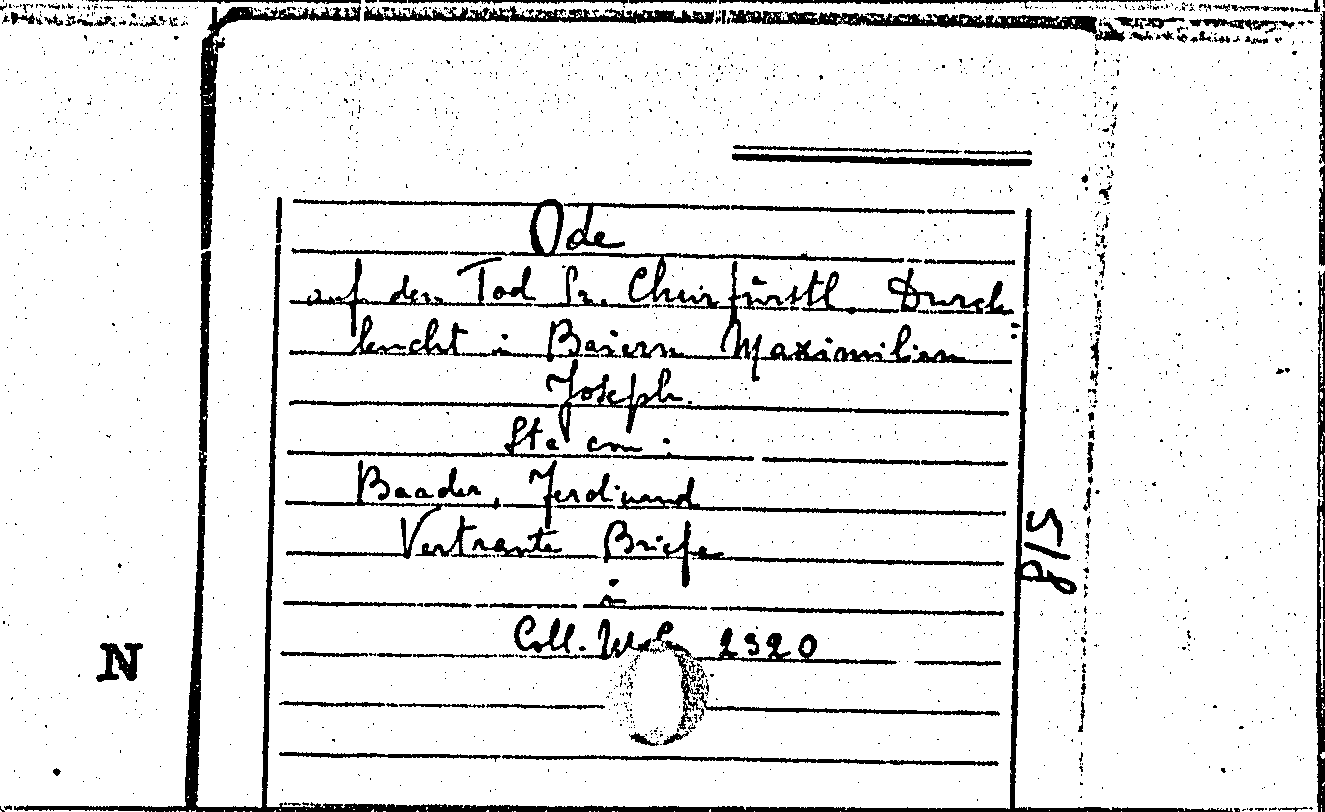 Ode
auf den Tod Sr. Churfürstl. Durch
leucht in Baiern Maximilian
Joseph.
Ste am:
Baader, Ferdinand
Vertraute Briefe
in
Coll. 2320
N